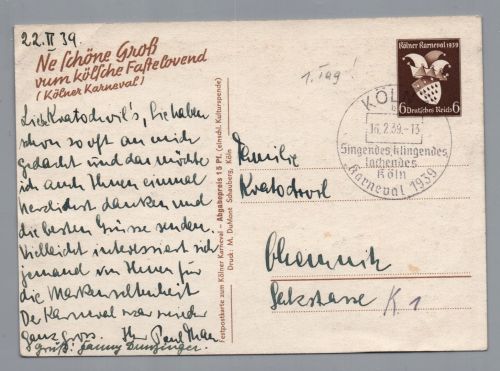 22.II 39.
Ne schöne Groß
vum kölsche Fastelovend
(Kölner Karneval)
Liebe Kratochvil's, Sie haben
schon so oft an mich
gedacht und da möchte
ich auch Ihnen einmal
herzlichst danken und
die besten Grüsse senden.
Vielleicht interessiert sich
jemand von Ihnen für
die Markenseltenheit
De Karneval war wieder
ganz gross. Ihr Paul
Gruß:
Festpostkarte zum Kölner Karneval – Abgabepreis 15 Pf. (einschl. Kulturspende)
Druck: M. DuMont Schauberg, Köln
1. Tag!
Kölner Karneval 1939
6 Deutsches Reich 6
KÖLN
16.2.39.-13
Singendes klingendes
lachendes
Köln
Karneval 1939
Familie
Kratochvil
Chemnitz
K 1